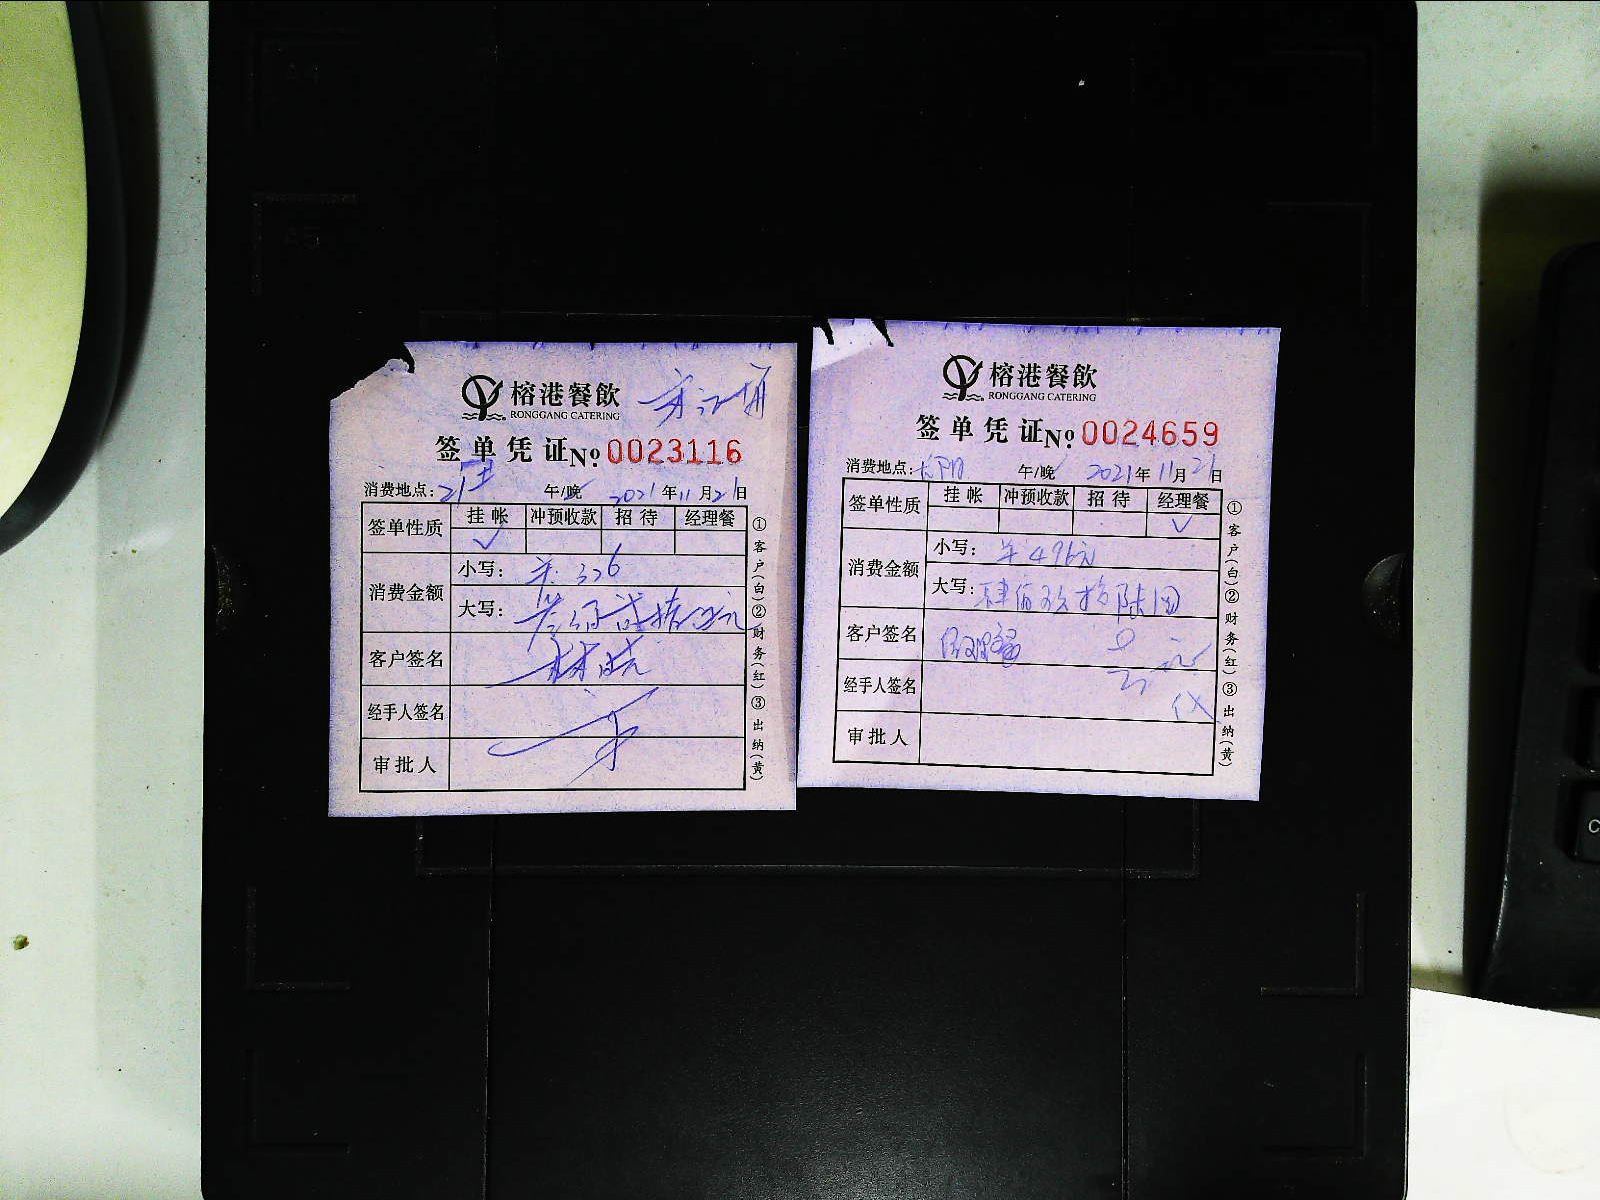 A4
A5
榕港餐飲
RONGGANG CATERING
签单凭证 № 0023116
消费地点: 午/晚 2021年11月21日
签单性质 挂帐 冲预收款 招待 经理餐
✓
消费金额 小写: 326
大写:
客户签名
经手人签名
审批人
①客户(白)②财务(红)③出纳(黄)
榕港餐飲
RONGGANG CATERING
签单凭证 № 0024659
消费地点: 午/晚 2021年11月21日
签单性质 挂帐 冲预收款 招待 经理餐
✓
消费金额 小写: 496元
大写: 肆佰玖拾陆圆
客户签名
经手人签名
审批人
①客户(白)②财务(红)③出纳(黄)
C